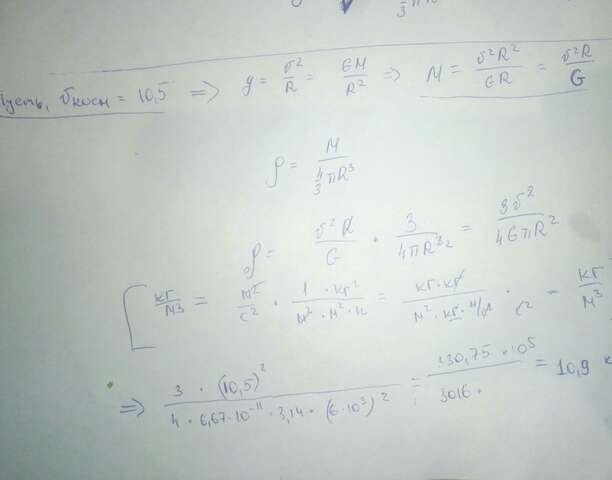 Пусть, υкосм = 10,5 => g = υ²/R = GM/R² => M = υ²R²/GR = υ²R/G
ρ = M / 4/3 πR³
ρ = υ²R/G · 3/4πR³ = 3υ²/4GπR²
[кг/м³ = м²/с² · 1·кг²/м²·м²·н = кг·кг/м²·кг·м/с² · с² = кг/м³
=> 3 · (10,5)² / 4 · 6,67·10⁻¹¹ · 3,14 · (6·10³)² = 330,75 · 10⁵ / 3016 · = 10,9